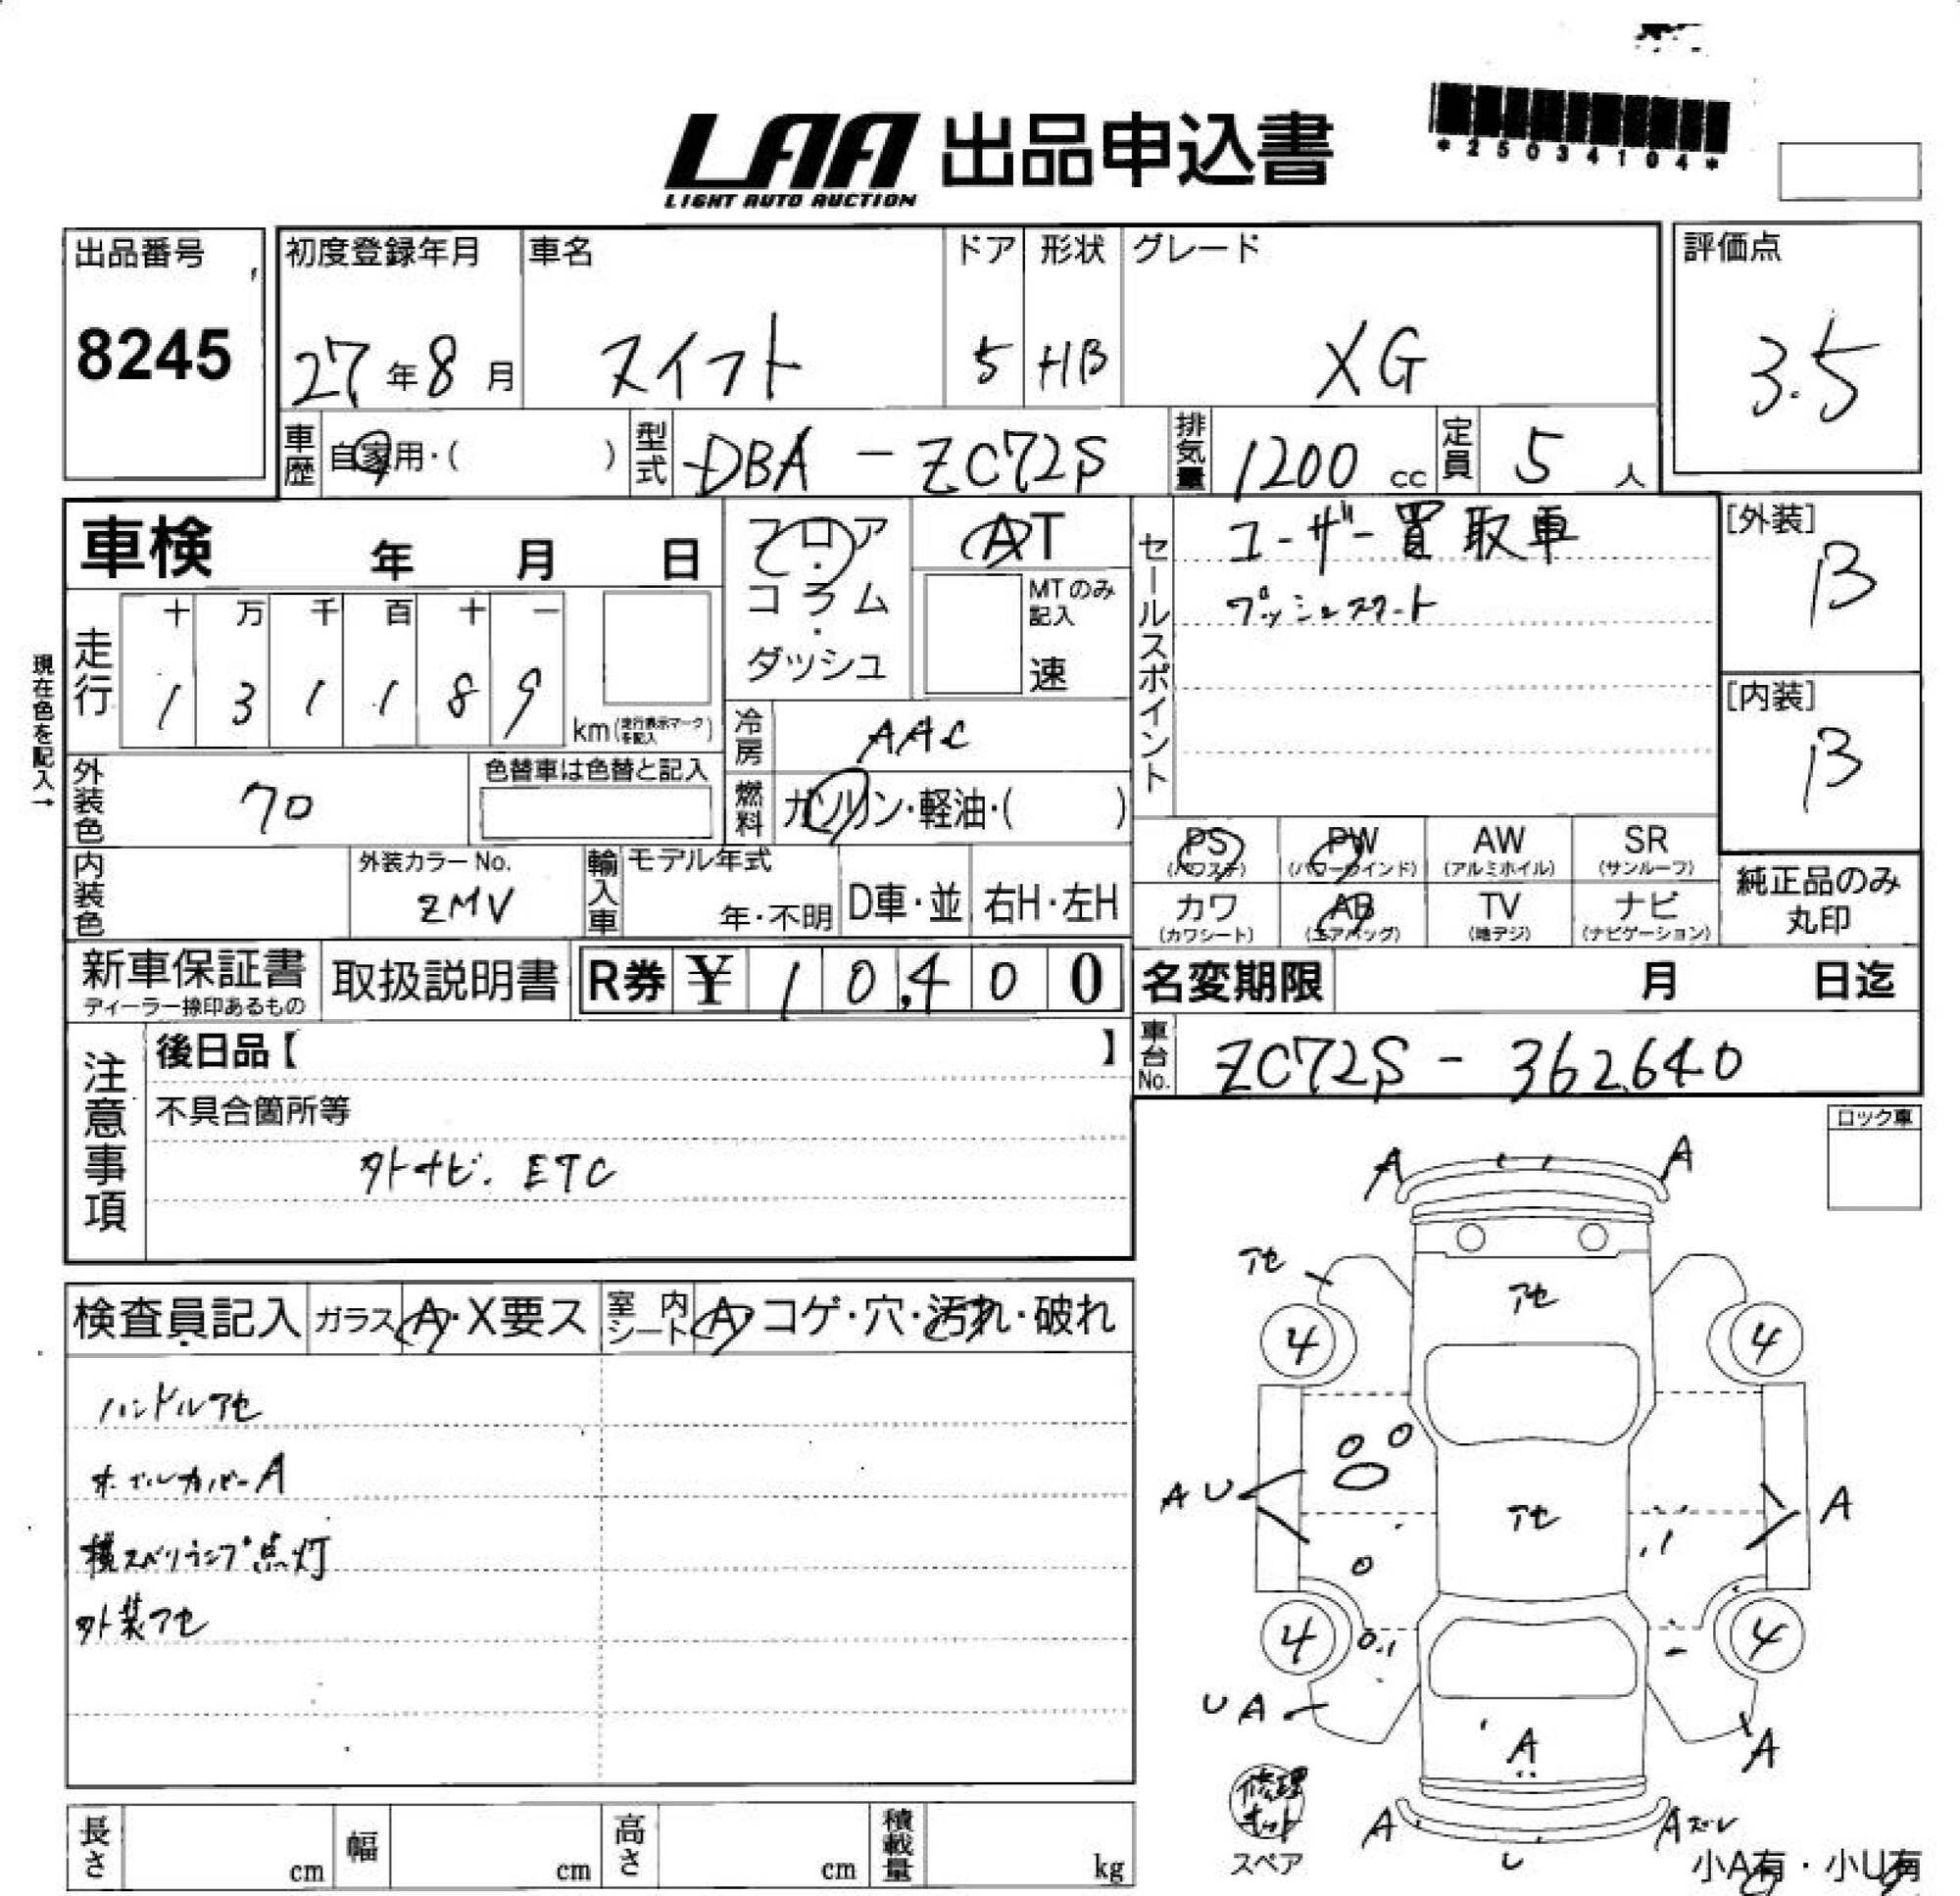 LAA 出品申込書
LIGHT AUTO AUCTION
*25034104*
出品番号
8245
初度登録年月
27年8月
車名
スイフト
ドア
5
形状
HB
グレード
XG
評価点
3.5
車歴
自家用・( )
型式
DBA - ZC72S
排気量
1200 cc
定員
5 人
車検 年 月 日
フロア・コラム・ダッシュ
AT
MTのみ記入
速
セールスポイント
ユーザー買取車
プッシュスタート
[外装]
B
[内装]
B
現在色を記入→
走行
十 万 千 百 十 一
1 3 1 1 8 9
km(走行表示マークを記入)
冷房
AAC
燃料
ガソリン・軽油・( )
外装色
クロ
色替車は色替と記入
内装色
外装カラーNo.
ZMV
輸入車
モデル年式
年・不明
D車・並
右H・左H
PS
(パワステ)
PW
(パワーウインド)
AW
(アルミホイル)
SR
(サンルーフ)
カワ
(カワシート)
AB
(エアバッグ)
TV
(地デジ)
ナビ
(ナビゲーション)
純正品のみ
丸印
新車保証書
ディーラー捺印あるもの
取扱説明書
R券 ¥ 10,400
名変期限 月 日迄
車台No.
ZC72S - 362640
注意事項
後日品【 】
不具合箇所等
外ナビ. ETC
ロック車
検査員記入
ガラス A・X要ス
室内シート A・コゲ・穴・汚れ・破れ
ハンドルアセ
ホイルカバーA
横スベリランプ点灯
外装アセ
A A
アセ
アセ
4 4
AU
アセ
A
4 4
UA
A
A
修理キット
スペア
A
Aズレ
小A有・小U有
長さ cm
幅 cm
高さ cm
積載量 kg